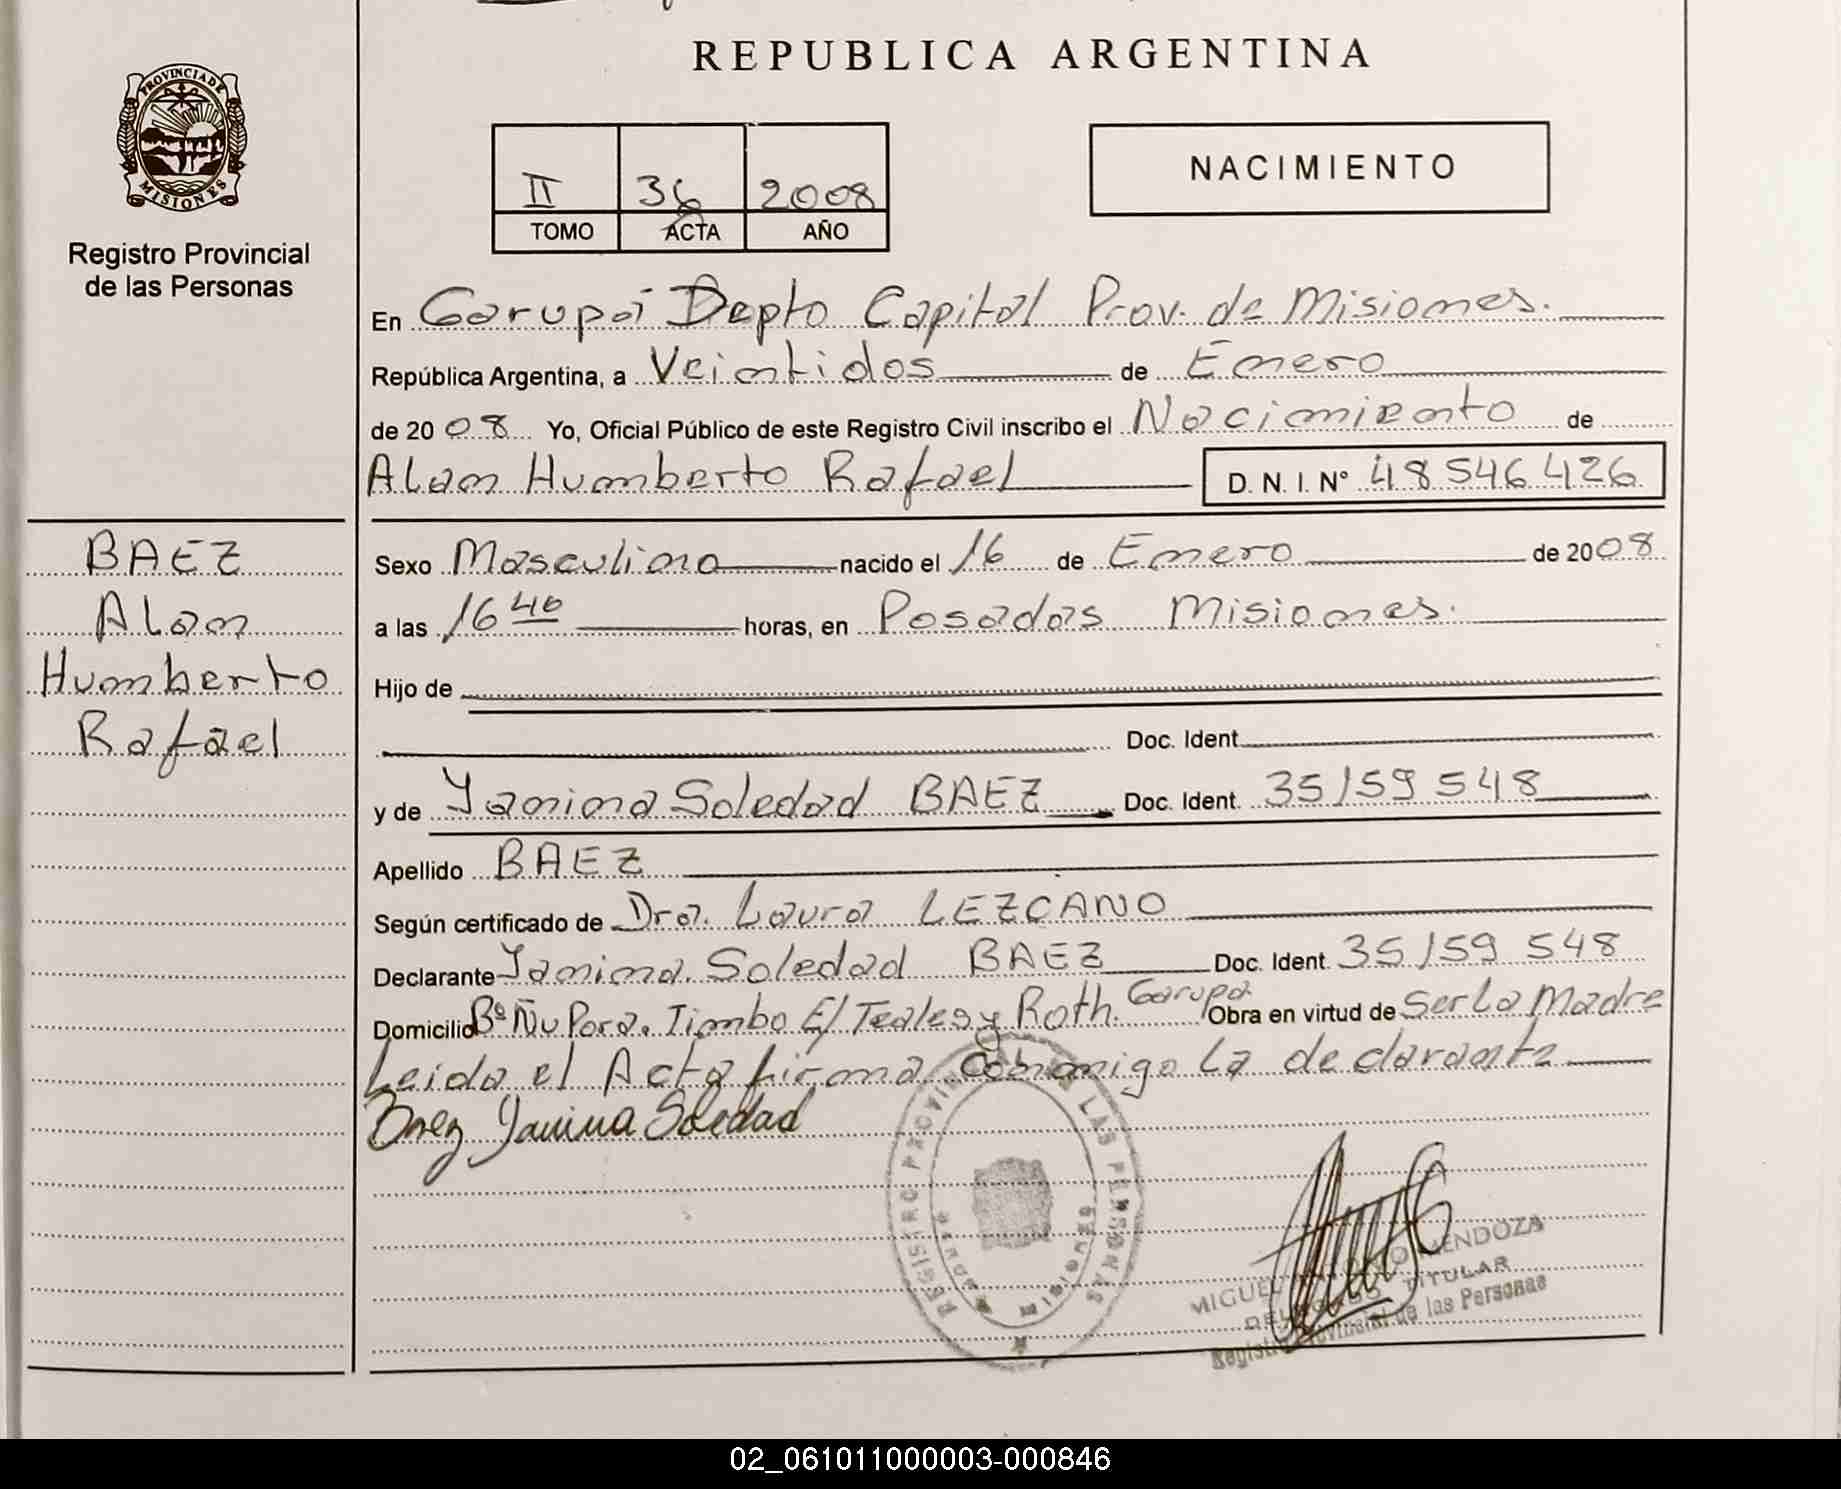 REPUBLICA ARGENTINA
PROVINCIA DE
MISIONES
Registro Provincial
de las Personas
II 36 2008
TOMO ACTA AÑO
NACIMIENTO
En Garupá Depto Capital Prov. de Misiones.
República Argentina, a Veintidos de Enero
de 2008 Yo, Oficial Público de este Registro Civil inscribo el Nacimiento de
Alan Humberto Rafael D. N. I. N° 48 546 426
BAEZ
Alan
Humberto
Rafael
Sexo Masculino nacido el 16 de Enero de 2008
a las 16 40 horas, en Posadas Misiones.
Hijo de
Doc. Ident.
y de Yanina Soledad BAEZ Doc. Ident. 35159 548
Apellido BAEZ
Según certificado de Dra. Laura LEZCANO
Declarante Yanina Soledad BAEZ Doc. Ident. 35159 548
Domicilio B° Ñu Pora. Timbo E/ Teales y Roth. Garupa Obra en virtud de Ser La Madre
Leida el Acta firma Conmigo La declarante
Baez Yanina Soledad
REGISTRO PROVINCIAL DE LAS PERSONAS
Misiones
MIGUEL MENDOZA
DELEGADO TITULAR
Registro Provincial de las Personas
02_061011000003-000846